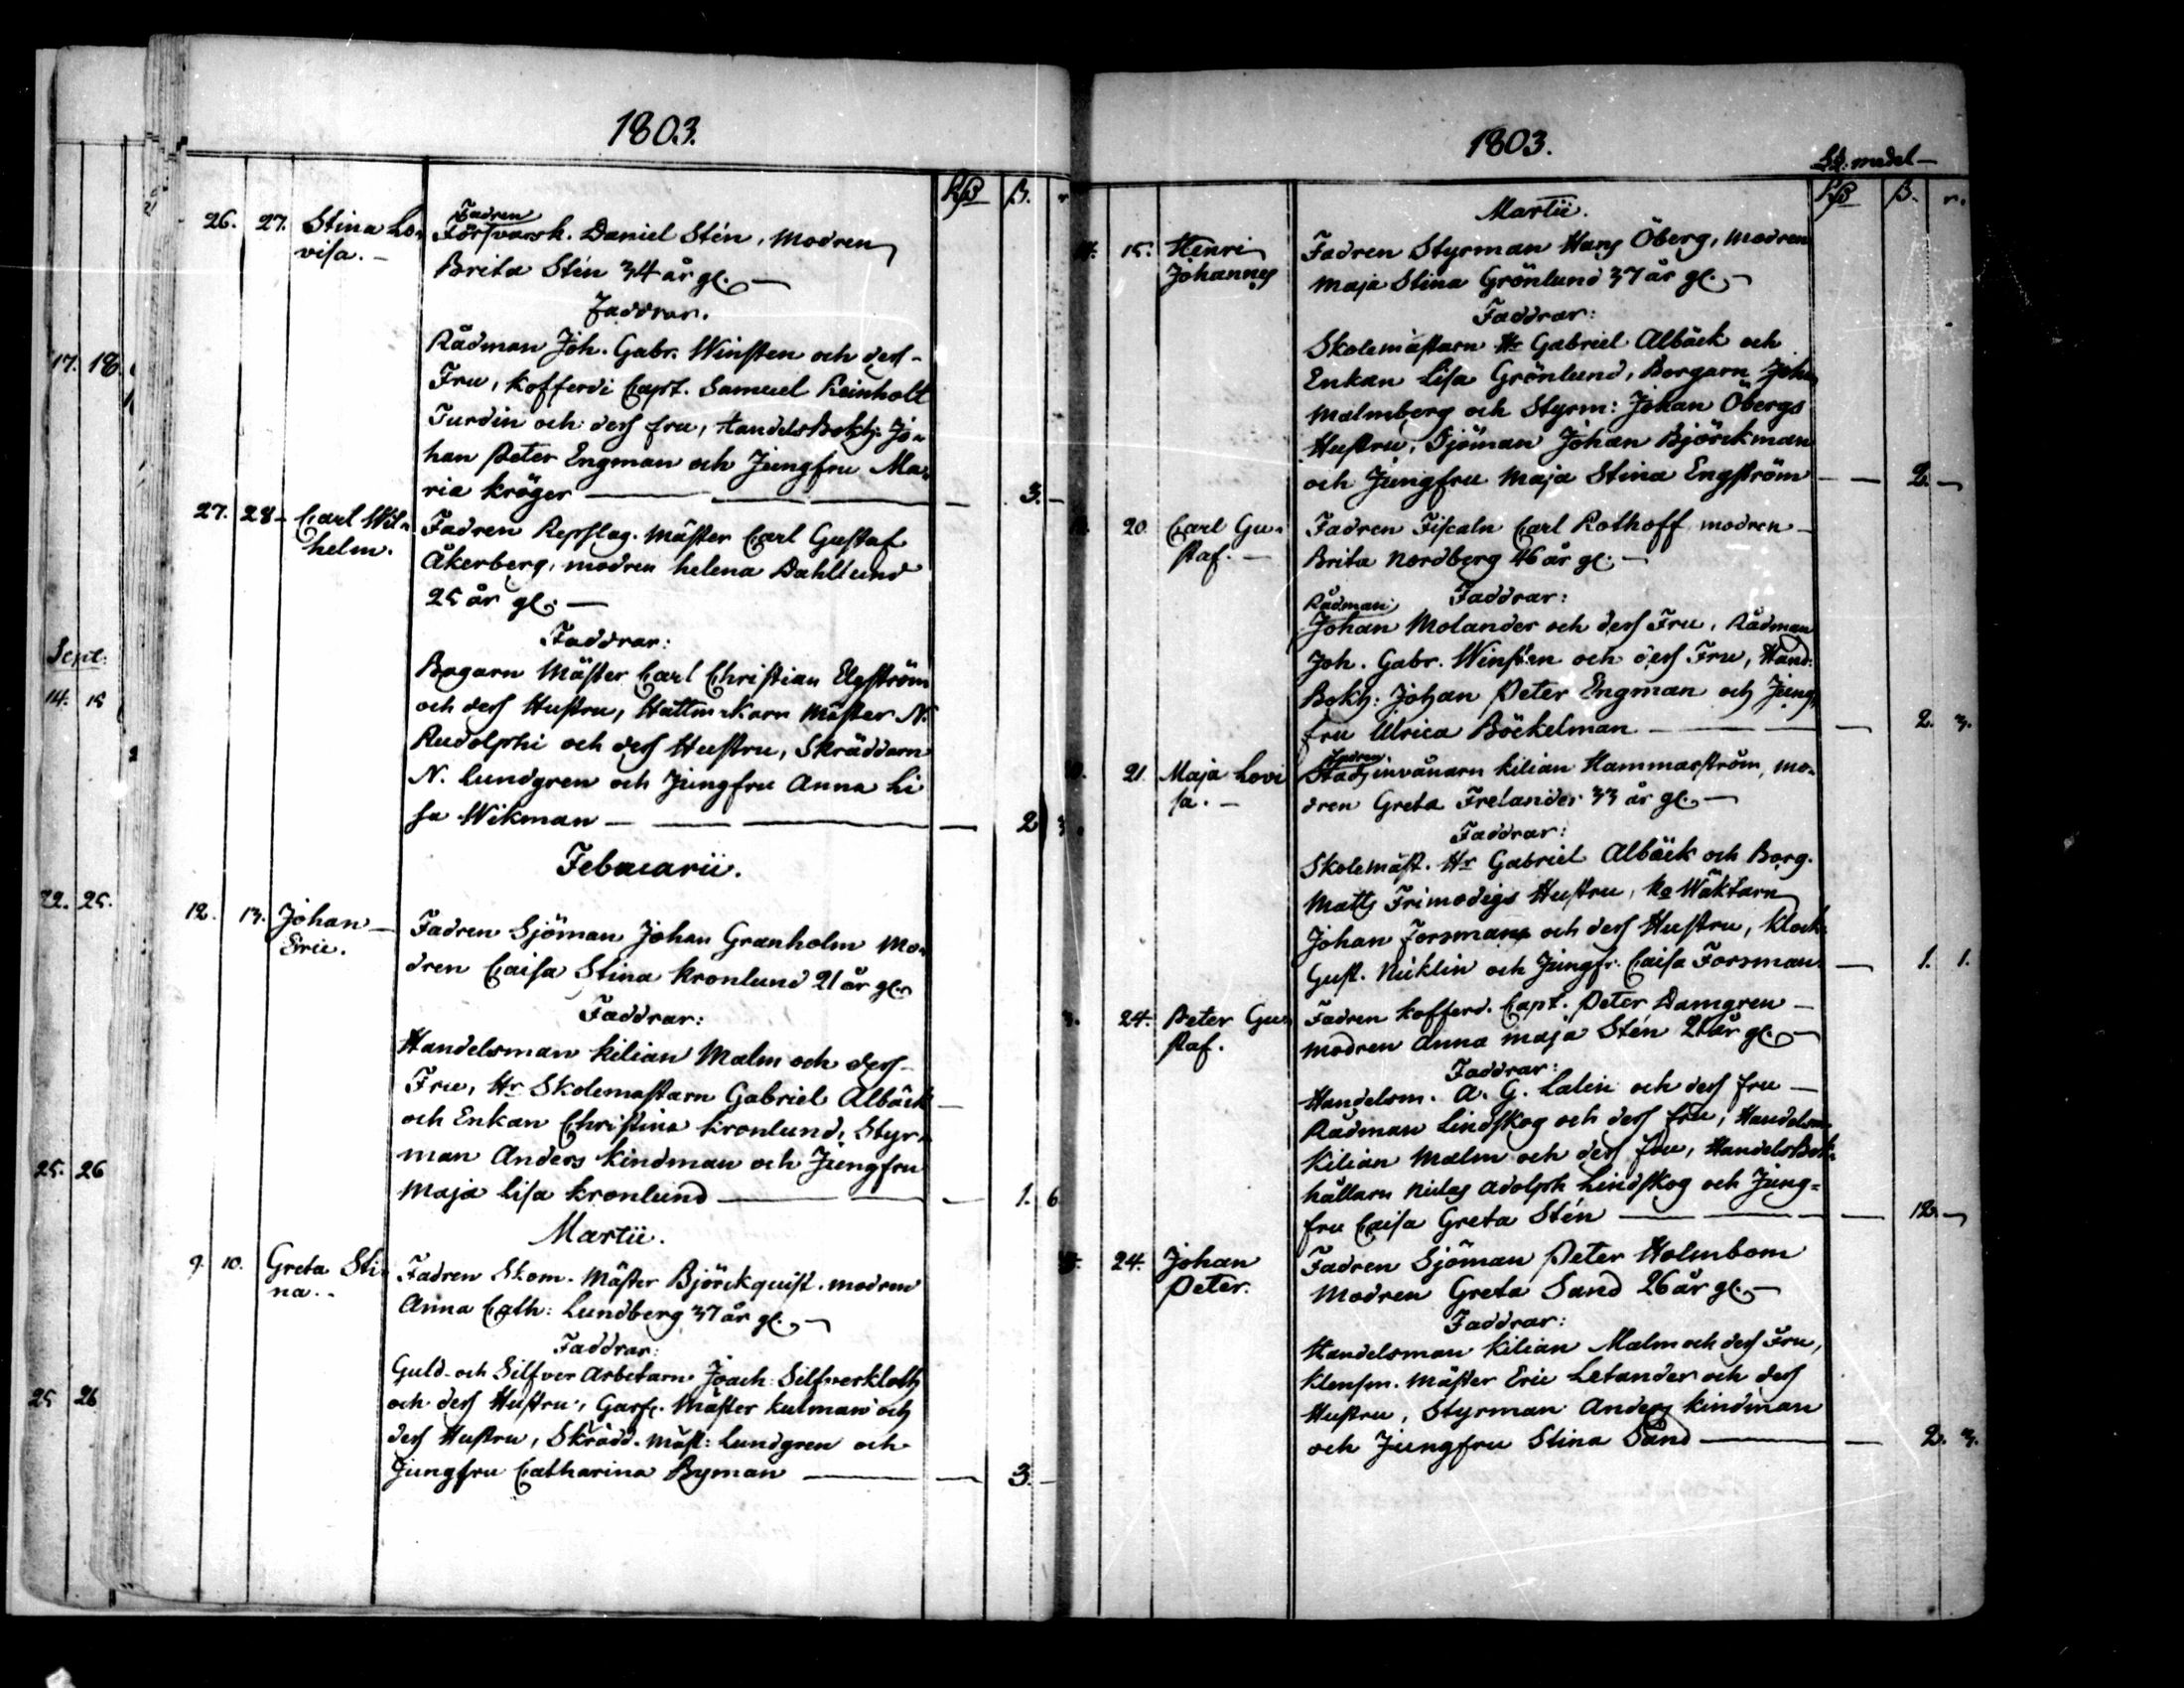 1803.
26. 27. Stina Lo-
visa. -
Fadren
Försvarsk. Daniel Stén, modren
Brita Stén 34 år gl. —
Faddrar.
Rådman Joh. Gabr. Winsten och dess-
Fru, kofferdi Capt. Samuel Reinholt
Turdin och dess fru, HandelsBokh: Jo-
han Peter Engman och Jungfru Ma-
ria kröger — 3. —
27. 28 - Carl Wil-
helm.
Fadren Repslag. Mäster Carl Gustaf
Åkerberg, modren helena Dahllund
25 år gl. —
Faddrar:
Bagarn Mäster Carl Christian Elgström
och dess Hustru, Hattmakarn Mäster N.
Rudolphi och dess Hustru, Skräddarn
N. Lundgren och Jungfru Anna Li
sa Wikman — 2 3
Februarii.
12. 13. Johan -
Eric.
Fadren Sjöman Johan Granholm Mo-
dren Caisa Stina kronlund 21 år gl.
Faddrar:
Handelsman kilian Malm och dess-
Fru, Hr Skolemästarn Gabriel Albäck —
och Enkan Christina kronlund, Styr-
man Anders kindman och Jungfru
Maja Lisa kronlund — 1. 6
Martii.
9. 10. Greta Sti-
na. -
Fadren Skom. Mäster Björckquist. modren
Anna Cath: Lundberg 37 år gl. —
Faddrar:
Guld- och Silfver Arbetarn Joach: Silfverkloth
och dess Hustru, Garf. Mäster kulman och
dess Hustru, Skrädd. Mäst: Lundgren och
Jungfru Catharina Byman — 3. —
17. 18.
Sept:
14. 15
22. 25.
25. 26
25 26
1803.
medel —
Martii.
14. 15. Henric
Johannes
Fadren Styrman Hans Öberg, modren
Maja Stina Grönlund 37 år gl. —
Faddrar:
Skolemästarn Hr Gabriel Albäck och
Enkan Lisa Grönlund, Borgarn Joh:
Malmberg och Styrm: Johan Öbergs
Hustru, Sjöman Johan Björckman
och Jungfru Maja Stina Engström — 2. —
20. Carl Gu-
staf. —
Fadren Fiscaln Carl Rothoff modren —
Brita Nordberg 46 år gl. —
Faddrar:
Rådman
Johan Molander och dess Fru, Rådman
Joh. Gabr. Winsten och dess Fru, Hand:
Bokh: Johan Peter Engman och Jung-
fru Ulrica Böckelman — 2. 3.
21. Maja Lovi
sa. —
Fadren
Stadsinvånarn kilian Hammarström, mo-
dren Greta Frelander 33 år gl. —
Faddrar:
Skolemäst. Hr Gabriel Albäck och Borg.
Matts Frimodigs Hustru, Wäktarn
Johan Forsman och dess Hustru, Klock:
Gust. Nicklin och Jungfr. Caisa Forsman — 1. 1.
24. Peter Gu-
staf.
Fadren kofferd. Capt. Peter Damgren —
modren Anna Maja Stén 21 år gl. —
Faddrar:
Handelsm. A. G. Lalin och dess fru —
Rådman Lindskog och dess fru, Handelsm.
Kilian Malm och dess fru, HandelsBok-
hållarn Niclas Adolph Lindskog och Jung-
fru Caisa Greta Stén — 12. —
24. Johan
Peter.
Fadren Sjöman Peter Holmbom
Modren Greta Sand 26 år gl. —
Faddrar:
Handelsman kilian Malm och dess Fru,
Klensm. Mäster Eric Letander och dess
Hustru, Styrman Anders kindman
och Jungfru Stina Sand — 2. 3.